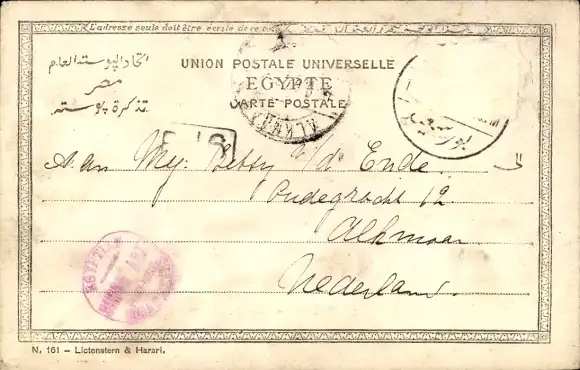 L'adresse seule doit être écrite de ce côté
اتحاد البوسته العام
مصر
تذكرة بوسته
UNION POSTALE UNIVERSELLE
EGYPTE
CARTE POSTALE
ALKMAAR
بور سعيد
Aan Mej. Betsy v/d Ende
Oudegracht 12
Alkmaar
Nederland.
N. 161 – Lictenstern & Harari.